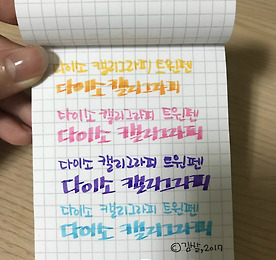 다이소 캘리그라피 트윈펜
다이소 캘리그라피
다이소 캘리그라피 트윈펜
다이소 캘리그라피
다이소 캘리그라피 트윈펜
다이소 캘리그라피
다이소 캘리그라피 트윈펜
다이소 캘리그라피
©김쌈,2017